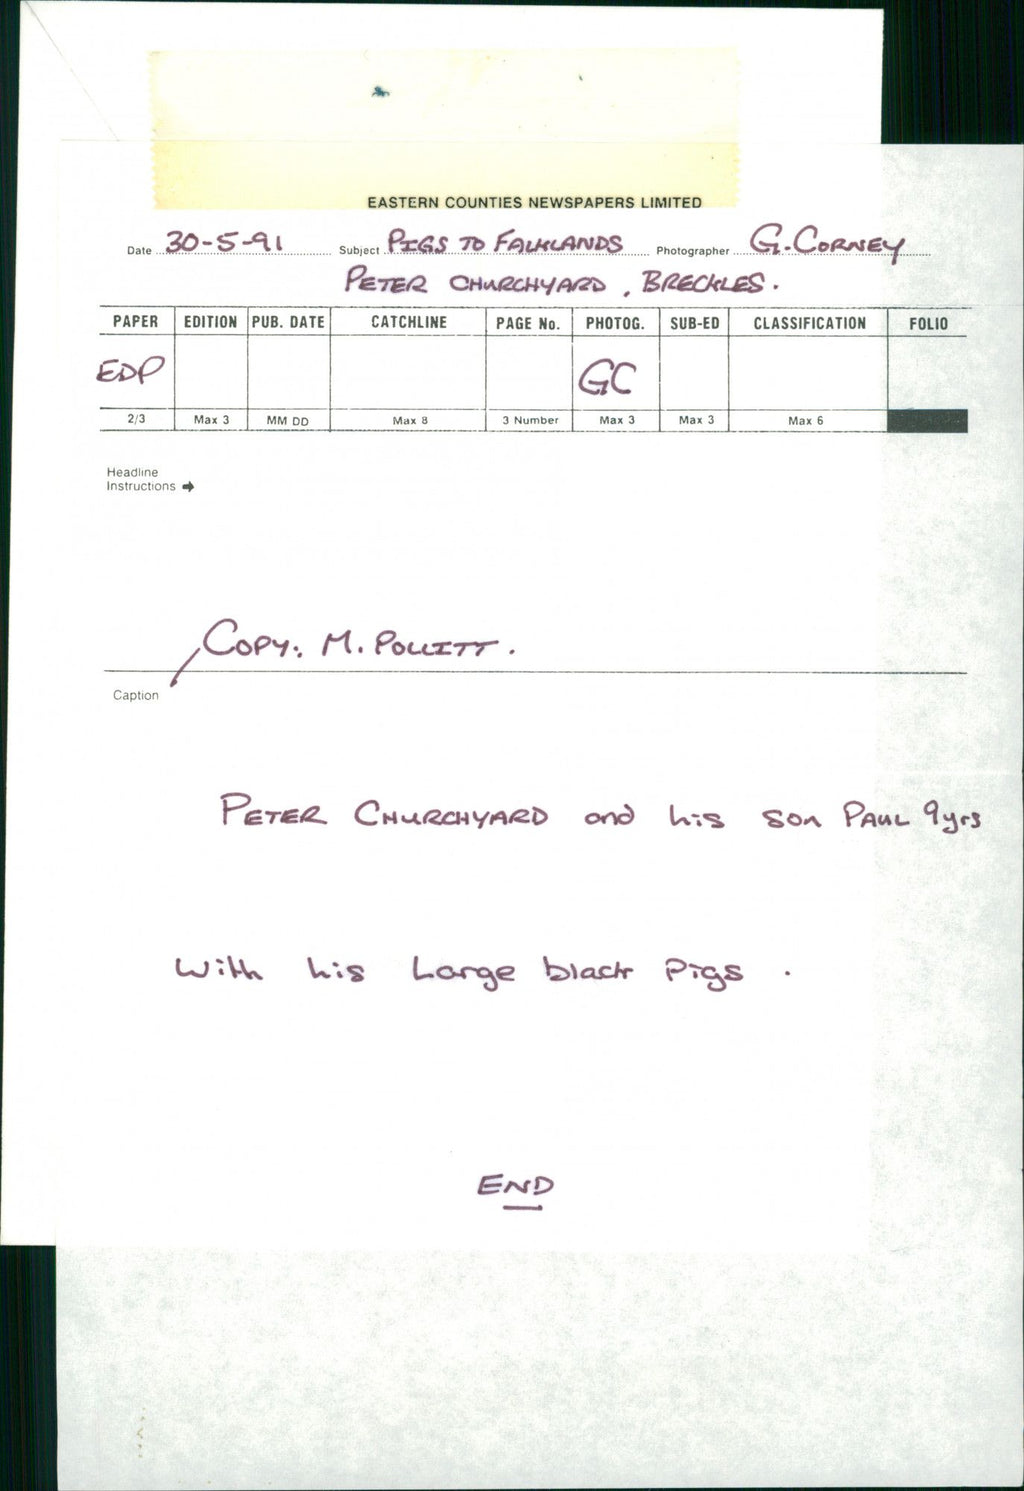 EASTERN COUNTIES NEWSPAPERS LIMITED
Date 30-5-91 Subject PIGS TO FALKLANDS Photographer G. CORNEY
PETER CHURCHYARD, BRECKLES.
PAPER EDITION PUB. DATE CATCHLINE PAGE No. PHOTOG. SUB-ED CLASSIFICATION FOLIO
EDP GC
2/3 Max 3 MM DD Max 8 3 Number Max 3 Max 3 Max 6
Headline
Instructions ➔
COPY: M. POLLITT.
Caption
PETER CHURCHYARD and his son PAUL 9yrs
With his Large black Pigs.
END